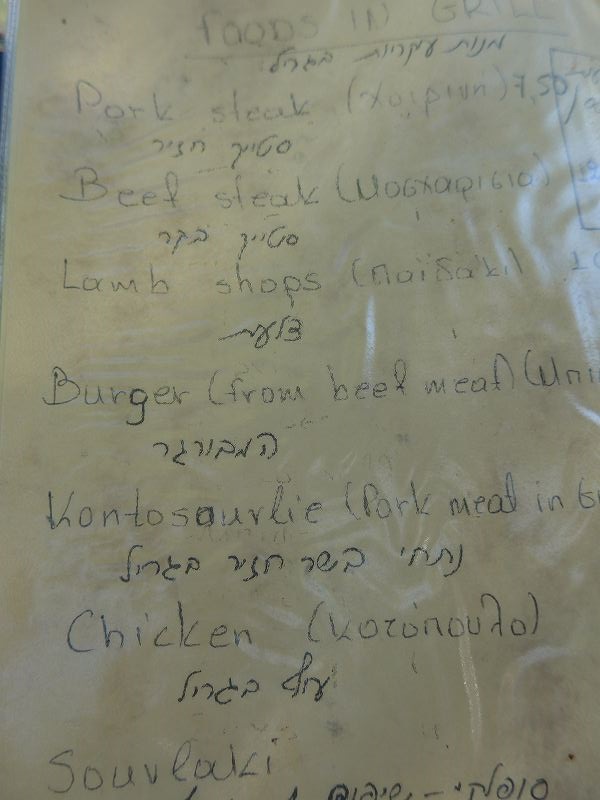 FOODS IN GRILL
מנות עיקריות בגריל
Pork steak (χοιρινή) 7,50
סטייק חזיר
Beef steak (Μοσχαρισια)
סטייק בקר
Lamb shops (παϊδάκι)
צלעות
Burger (from beef meat)
המבורגר
Kontosouvlie (Pork meat in
נתחי בשר חזיר בגריל
Chicken (κοτόπουλο)
עוף בגריל
Souvlaki
סופלקי - שיפוד